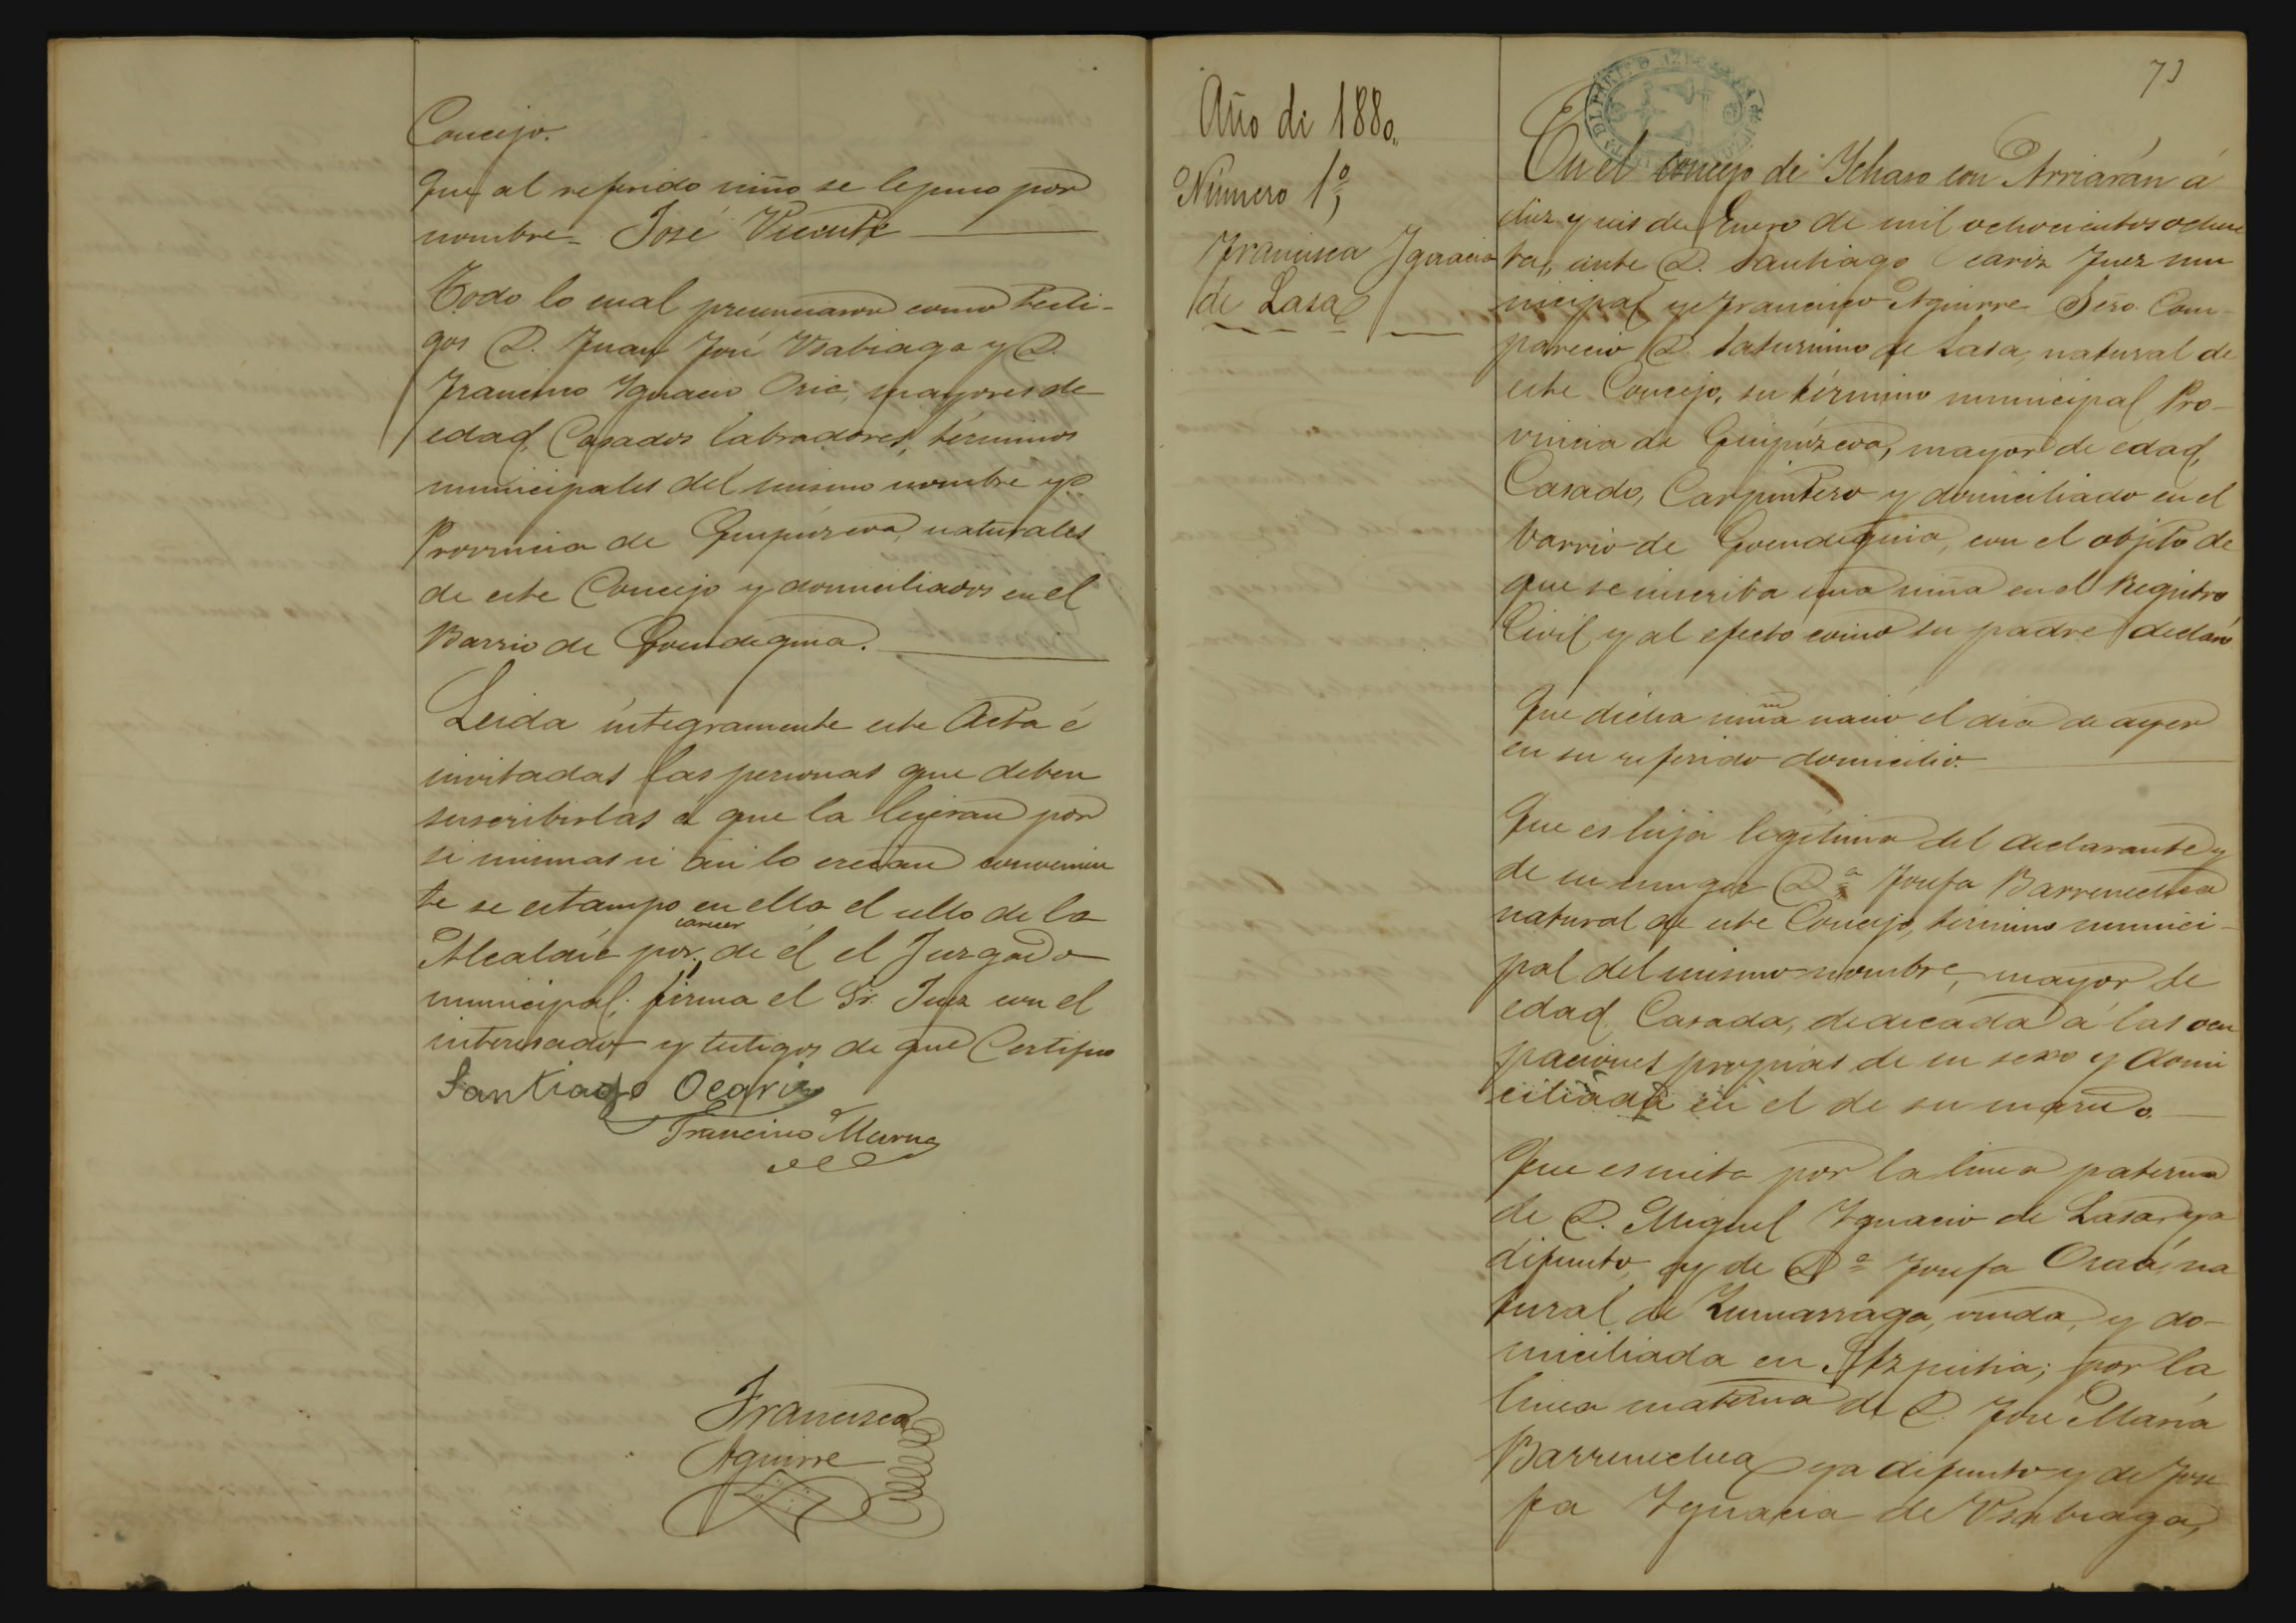 Concejo.
Que al referido niño se le puso por
nombre José Vicente
Todo lo cual presenciaron como testi-
gos D. Juan José Usabiaga y D.
Francisco Ignacio Oria, mayores de
edad, Casados labradores, términos
municipales del mismo nombre y
Provincia de Guipúzcoa, naturales
de este Concejo y domiciliados en el
Barrio de Goendeguia.
Leida integramente este Acta é
invitadas las personas que deben
suscribirlas á que la leyeran por
si mismas si asi lo creian convenien
te se estampo en ella el sello de la
carecer
Alcaldia por de él el Juzgado
municipal; firma el Sr. Juez con el
interesado y testigos de que Certifico
Santiago Ocariz
Francisco
Francisco
Aguirre
Año de 1880.
Número 1º
Francisca Ignacia
de Lasa
73
En el concejo de Ychaso con Arriarán á
diez y seis de Enero de mil ochocientos ochen
ta, ante D. Santiago Ocariz Juez mu
nicipal y Francisco Aguirre Srio. Com-
pareció D. Saturnino de Lasa, natural de
este Concejo, su término municipal Pro-
vincia de Guipúzcoa, mayor de edad,
Casado, Carpintero y domiciliado en el
barrio de Goendeguia, con el objeto de
que se inscriba una niña en el Registro
Civil, y al efecto como su padre declaró
Que dicha niña nació el dia de ayer
en su referido domicilio.
Que es hija legitima del declarante y
de su muger Dª Josefa Barrenechea
natural de este Concejo, término munici-
pal del mismo nombre, mayor de
edad, Casada, dedicada á las ocu
paciones propias de su sexo y domi
ciliada en el de su marido.
Que es nieta por la linea paterna
de D. Miguel Ignacio de Lasa, ya
difunto, y de Dª Josefa na
tural de Zumarraga, viuda, y do-
miciliada en Azpeitia; por la
linea materna de D. José Maria
Barrenechea ya difunto y de Jose
fa Ignacia de Usabiaga,